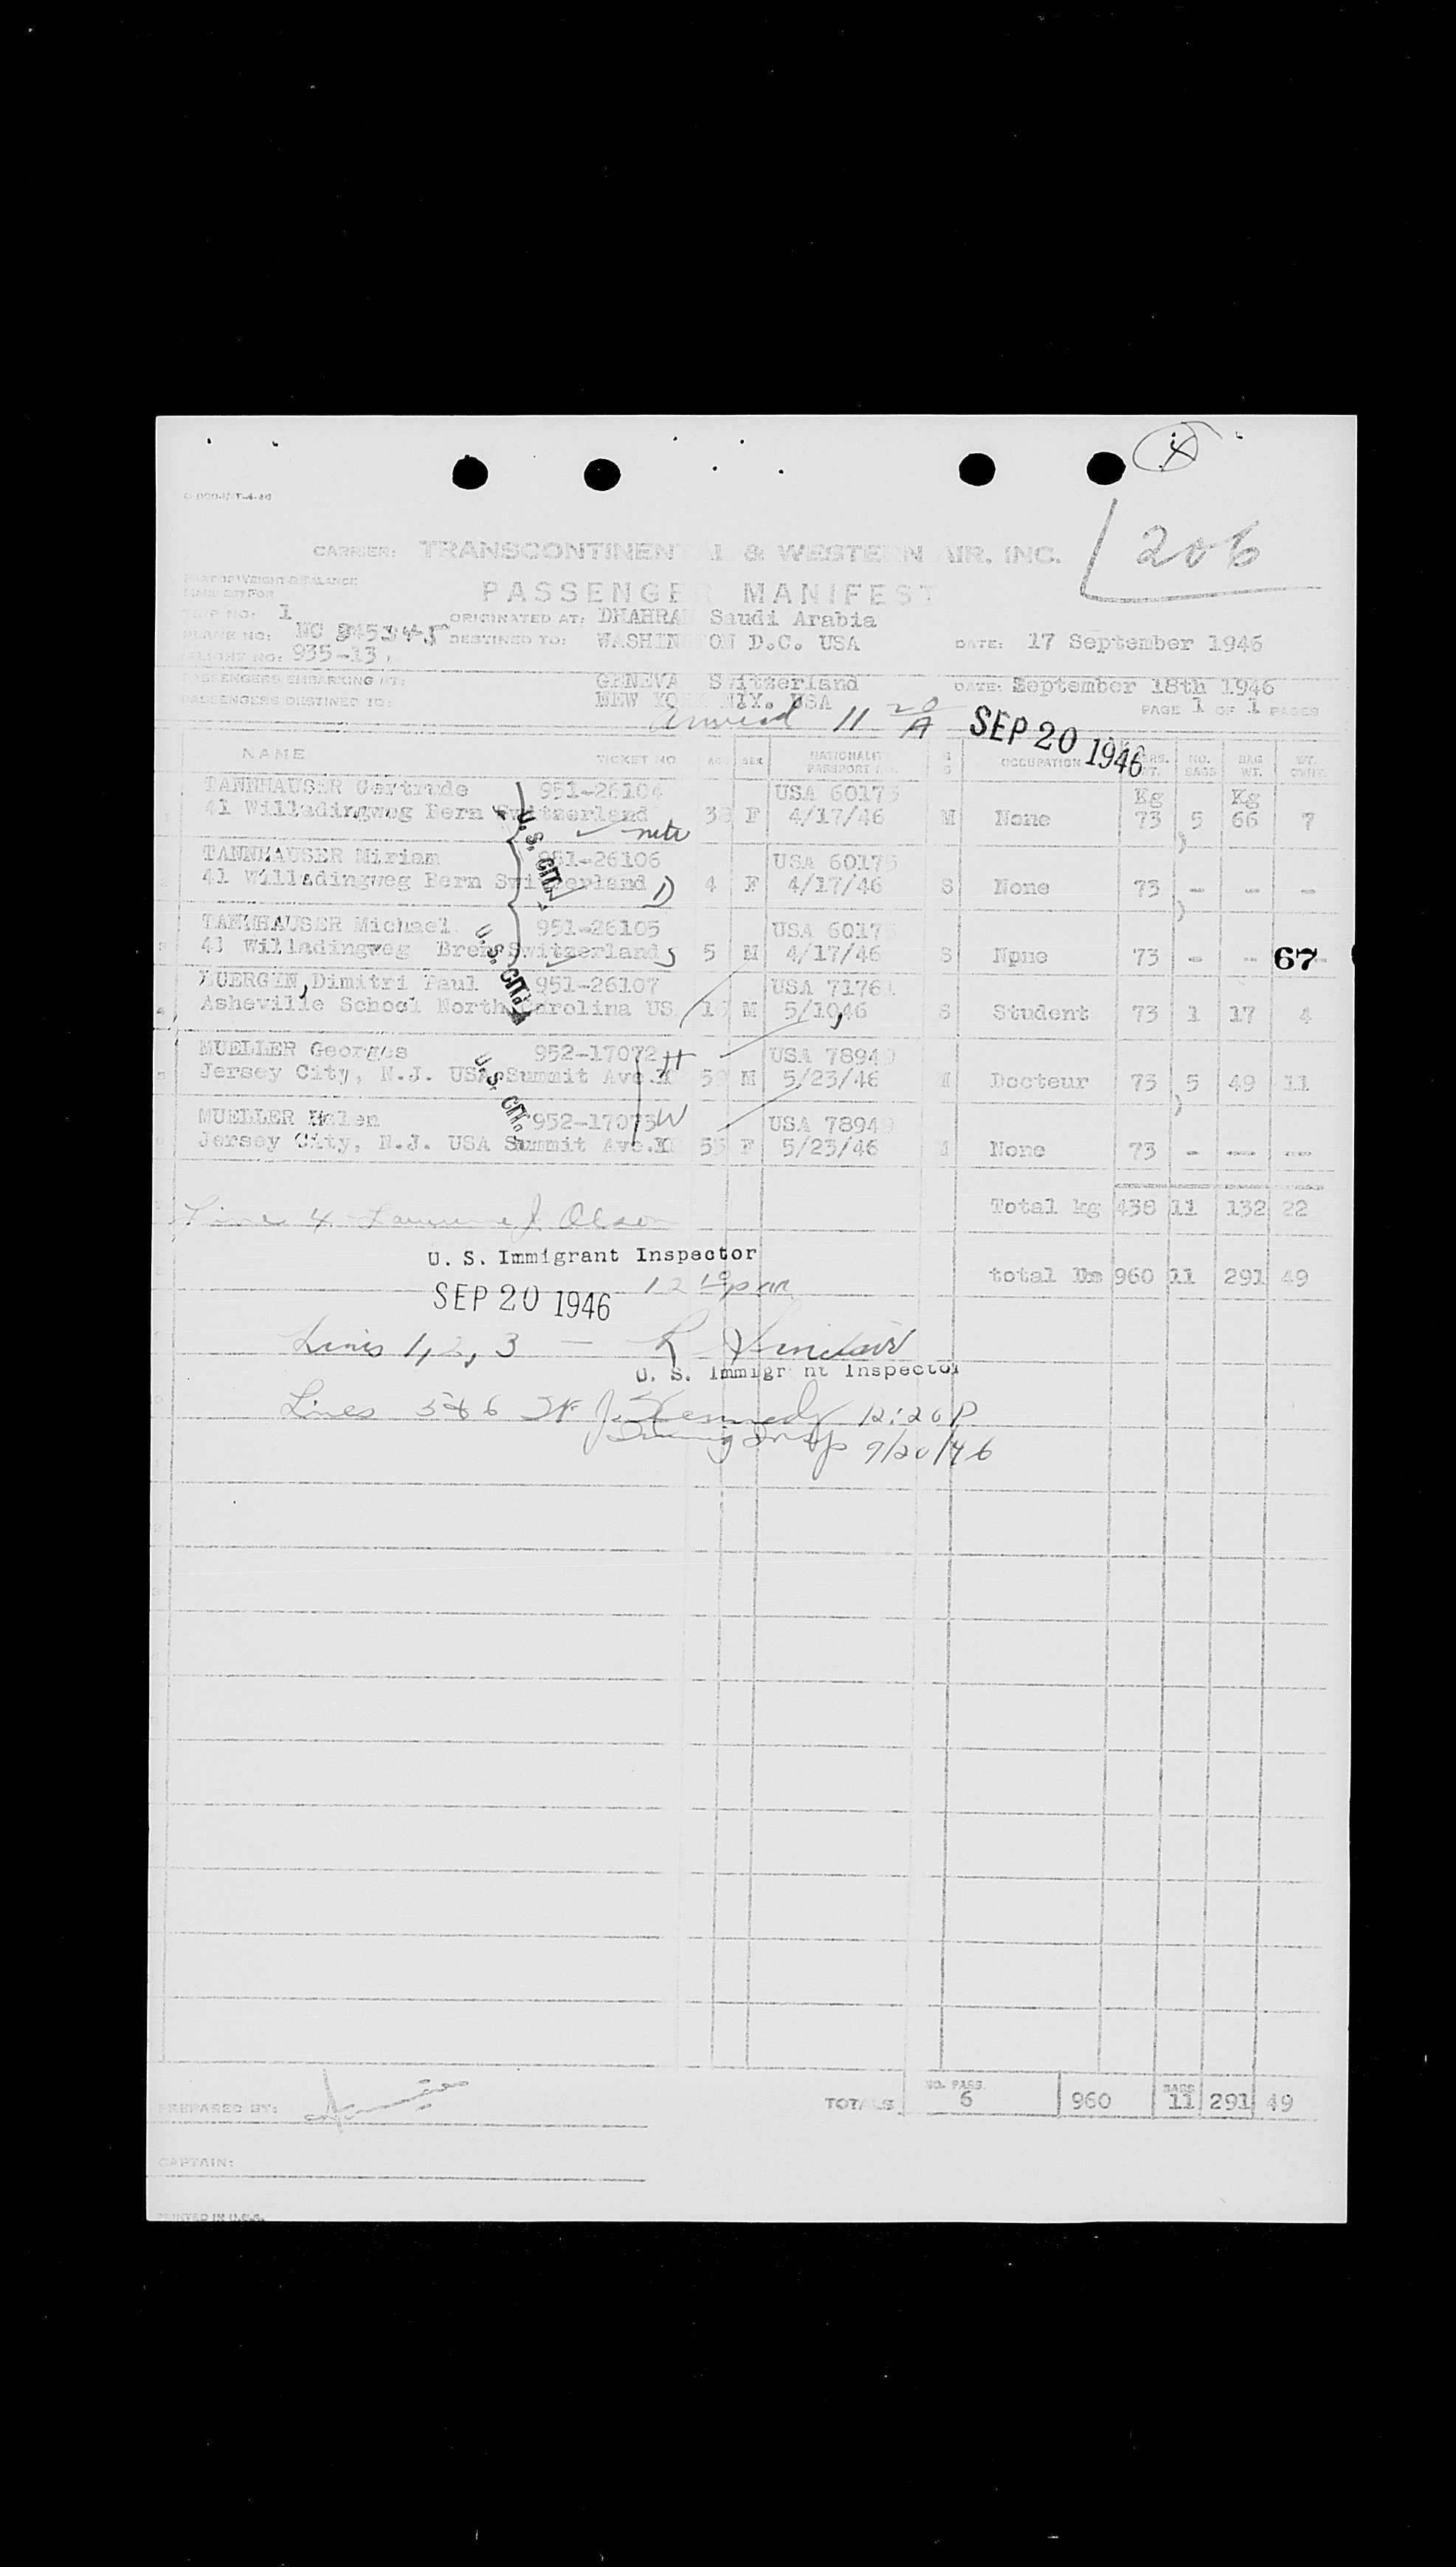 4
206
CARRIER: TRANSCONTINENTAL & WESTERN AIR, INC.
PASSENGER MANIFEST
TRIP NO: 1
ORIGINATED AT: DHAHRA Saudi Arabia
PLANE NO: NC
DESTINED TO: WASHINGTON D.C. USA DATE: 17 September 1946
FLIGHT NO: 935-13
PASSENGERS EMBARKING AT: GENEVA Switzerland DATE: September 18th 1946
PASSENGERS DESTINED TO: NEW YO NIY. USA PAGE 1 OF 1 PAGES
Arrived 11 20/A SEP 20 1946
NAME TICKET NO AGE SEX NATIONALITY PASSPORT NO. M S OCCUPATION NO. BAGS BAG WT. WT. OVWT.
TANNHAUSER Gertrude 951-26104 USA 60175 Kg Kg
41 Willadingweg Bern Switzerland 38 F 4/17/46 M None 73 5 66 7
U. S. CIT.
TANNHAUSER Miriam 951-26106 USA 60175
41 Willadingweg Bern Switzerland D 4 F 4/17/46 S None 73 - -- -
TANNHAUSER Michael 951-26105 USA 6017
41 Willadingweg Bren Switzerland S 5 M 4/17/46 S Npne 73 - -- 67
U. S. CIT.
Dimitri Paul 951-26107 USA 7176
Asheville School North Carolina US M 5/1946 S Student 73 1 17 4
MUELLER Georges 952-17072 H USA 78949
Jersey City, N.J. USA Summit Ave. 59 M 5/23/46 M Docteur 73 5 49 11
U. S. CIT.
MUELLER Helen 952-17073 W USA 78949
Jersey City, N.J. USA Summit Ave. 55 F 5/23/46 M None 73 - -- --
Total kg 438 11 132 22
Line 4 Lawrence J. Olson
U. S. Immigrant Inspector
total Lbs 960 11 291 49
SEP 20 1946 12 10 pm
Lines 1, 2, 3 — R Sinclair
U. S. Immigrant Inspector
Lines 5 & 6 J. Kennedy 12:20 P
Immig Insp 9/20/46
PREPARED BY:
TOTALS NO. PASS. 6 960 BAGS 11 291 49
CAPTAIN:
PRINTED IN U.S.A.